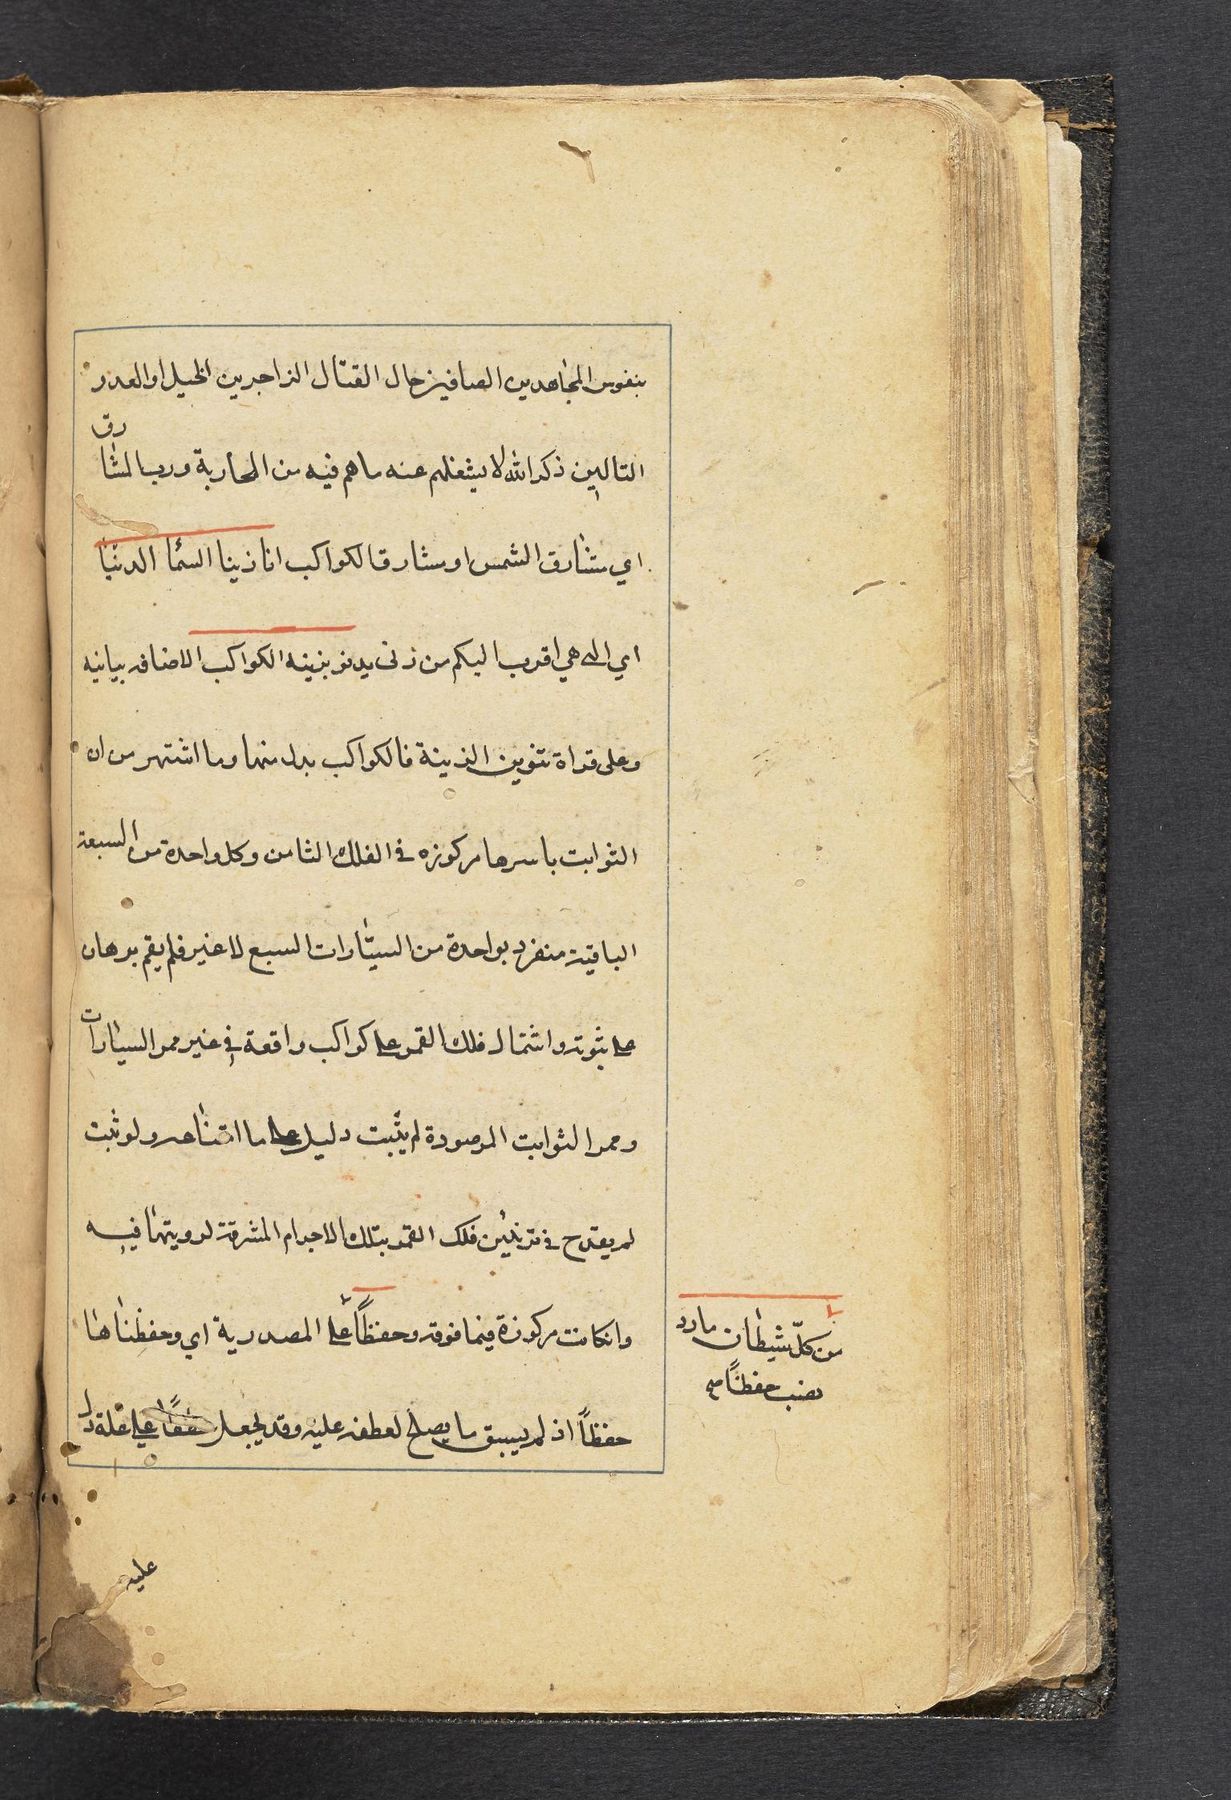 بنفوس المجاهدين الصافين حال القتال الزاجرين الخيل او العدو
التالين ذكر الله لا يشغلهم عنه ما هم فيه من المحاربة ورب المشارق
اي مشارق الشمس او مشارق الكواكب انا زينا السما الدنيا
اي التي هي اقرب اليكم من بزينه الكواكب الاضافه بيانيه
وعلى قراة تنوين الزينة فالكواكب بدل منها وما اشتهر من ان
الثوابت باسرها مركوزه في الفلك الثامن وكل واحدة من السبعة
الباقية منفرد بواحدة من السيّارات السبع لا غير فلم يقم برهان
على ثبوته واشتمال فلك القمر على كواكب واقعة في غير ممر السيارات
وممر الثوابت المرصودة لم يثبت دليل على امتناعه ولو ثبت
لم يقدح في تزيين فلك القمر بتلك الاجرام المشرقة لرويتها فيه
وان كانت مركوزة فيما فوقه وحفظاً على المصدرية اي وحفظناها
حفظاً اذ لم يسبق ما يصلح لعطفه عليه وقد يجعل على علة دل
من كلّ شيطان مارد
نصب حفظاً صح
عليه